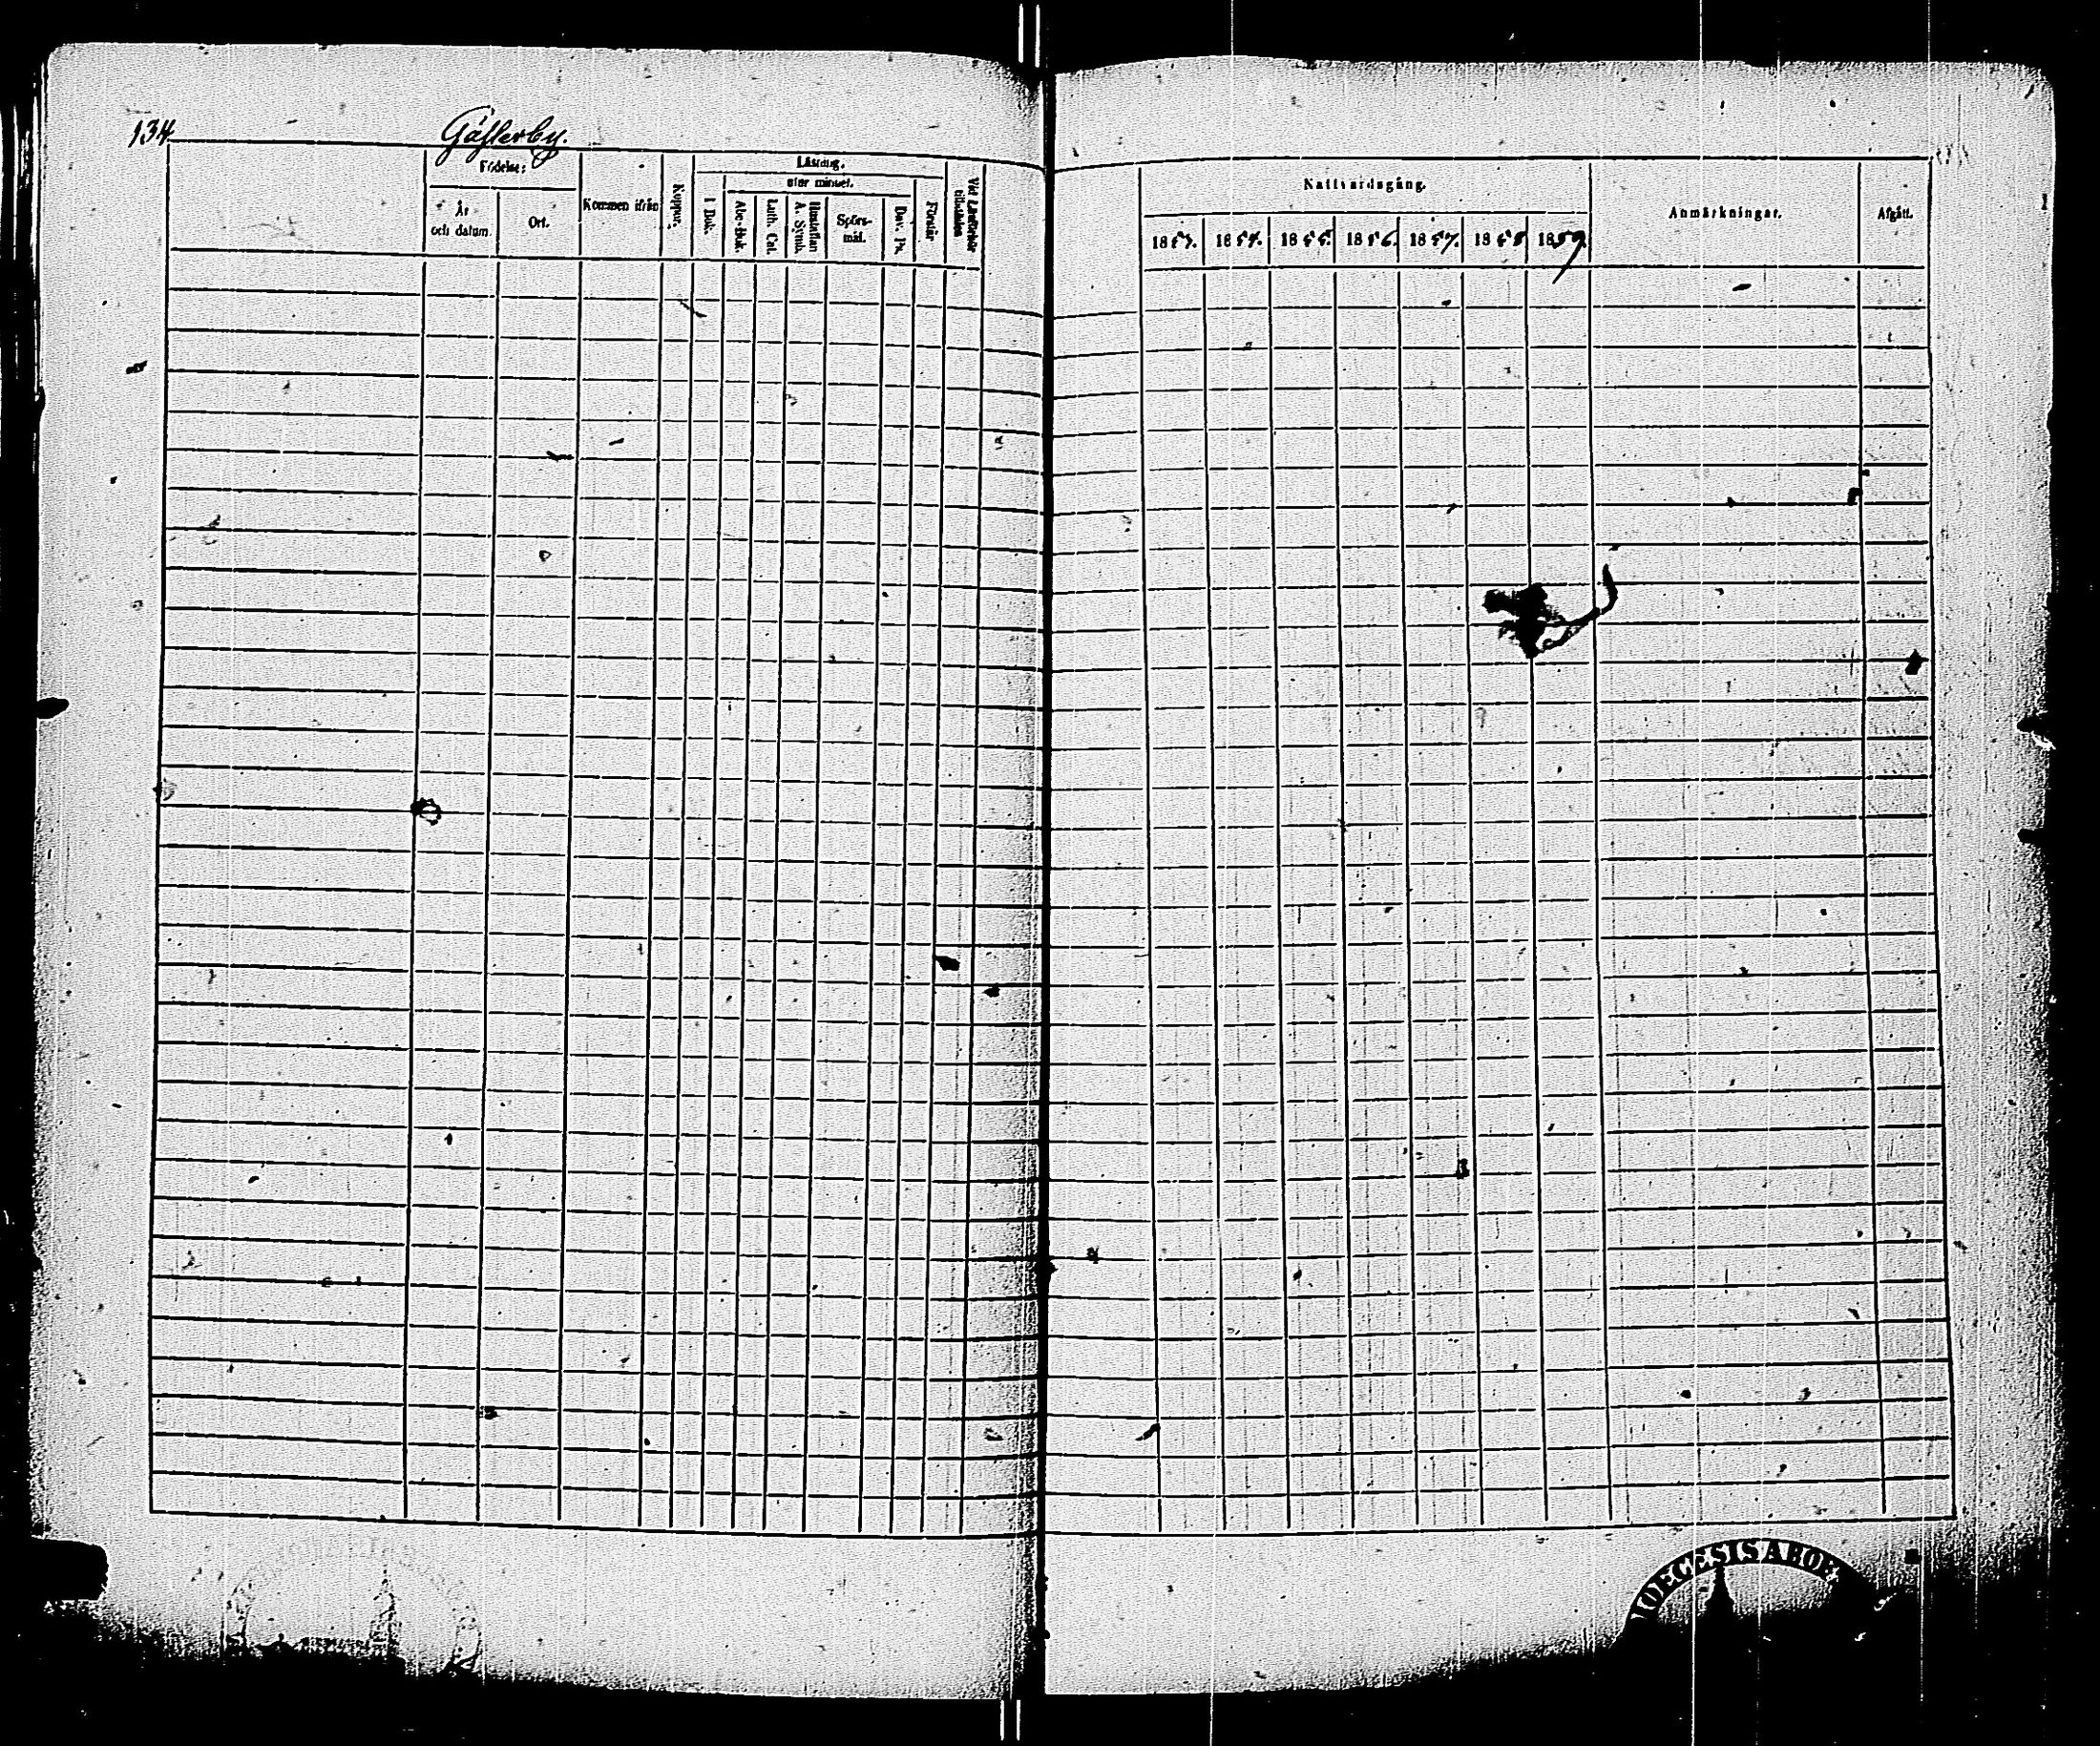 134
Gästerby.
Födelse:
År
och datum.
Ort.
Kommen ifrån
Koppor.
Läsning.
I Bok.
utur minnet.
Abc-Bok.
Luth. Cat.
Hustaflan
A. Symb.
Spörs-
mål.
Dav. Ps.
Förstår
Vid Läsförhör
tillstädes
Nattvardsgång.
1853.
1854.
1855.
1856.
1857.
1858
1859.
Anmärkningar.
Afgått.